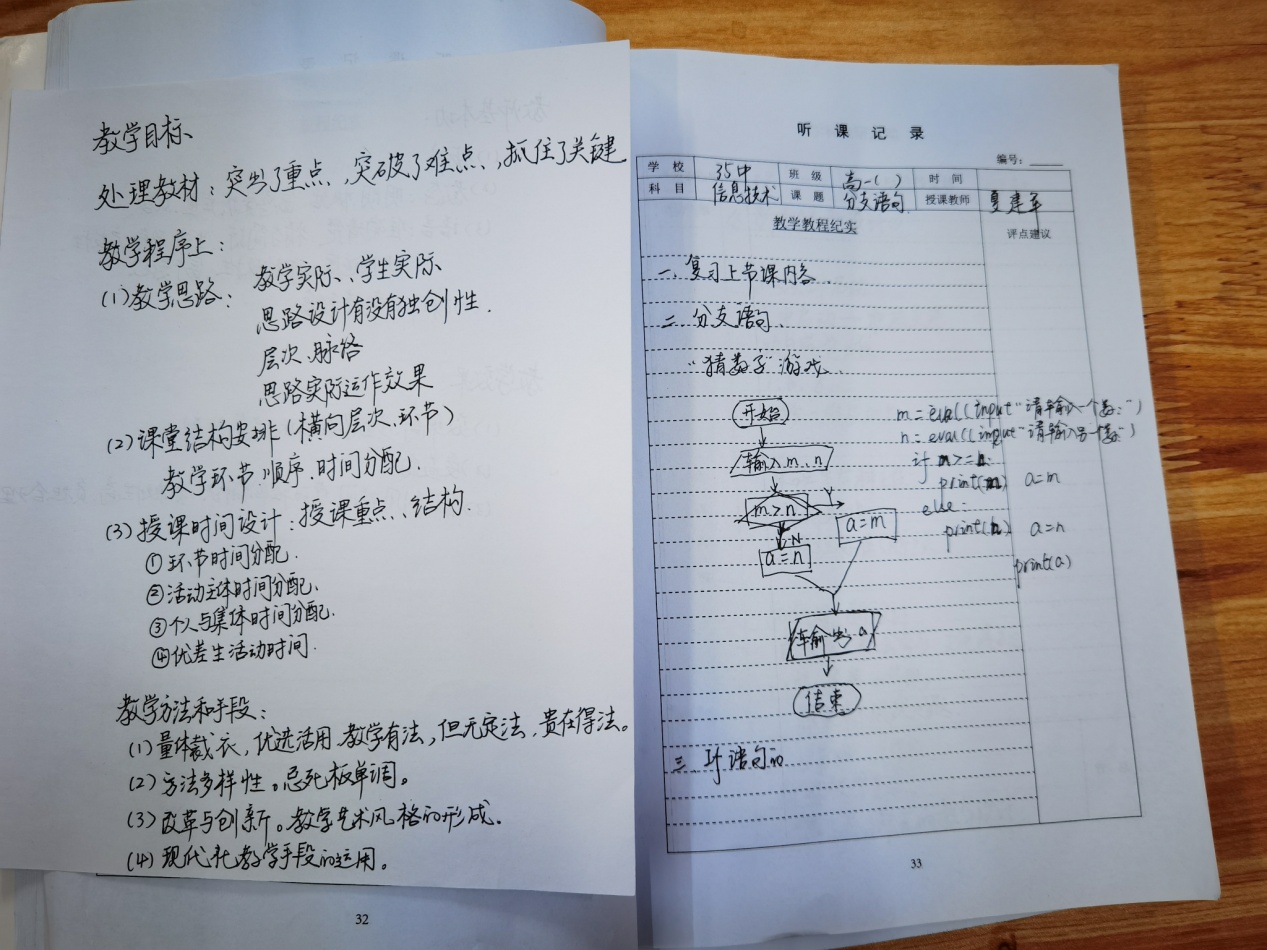 教学目标
处理教材：突出了重点，突破了难点，抓住了关键
教学程序上：
(1)教学思路：教学实际、学生实际
思路设计有没有独创性.
层次、脉络
思路实际运作效果
(2)课堂结构安排(横向层次、环节)
教学环节、顺序、时间分配.
(3)授课时间设计：授课重点、结构.
①环节时间分配.
②活动主体时间分配.
③个人与集体时间分配.
④优差生活动时间.
教学方法和手段：
(1)量体裁衣，优选活用.教学有法，但无定法，贵在得法。
(2)方法多样性。忌死板单调。
(3)改革与创新。教学艺术风格的形成.
(4)现代化教学手段的运用。
32
听课记录
编号：
学校 35中 班级 高一( ) 时间
科目 信息技术 课题 分支语句 授课教师 夏建军
教学教程纪实
评点建议
一.复习上节课内容.
二.分支语句.
"猜数字"游戏
开始
m=eval(input"请输入一个数:")
n=eval(input"请输入另一个数:")
输入m、n
if m>=n:
print(m) a=m
m>n
Y
else:
a=m
N
print(n) a=n
a=n
print(a)
输出a
结束
三.if语句的
33